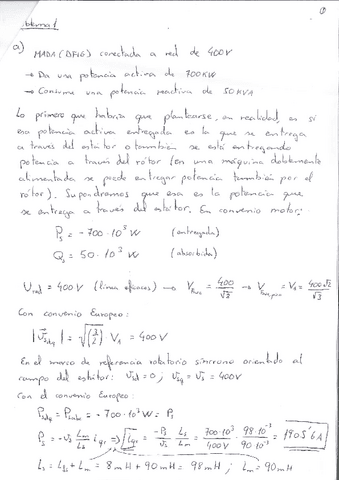 ①
Problema 1
a) MADA (DFIG) conectada a red de 400V
→ Da una potencia activa de 700KW
→ Consume una potencia reactiva de 50 KVA
Lo primero que habría que plantearse, en realidad, es si
esa potencia activa entregada es la que se entrega
a través del estátor o también se está entregando
potencia a través del rótor (en una máquina doblemente
alimentada se puede entregar potencia también por el
rótor). Supondremos que esa es la potencia que
se entrega a través del estátor. En convenio motor:
Ps = -700·10³ W (entregada)
Qs = 50·10³ W (absorbida)
Ured = 400V (línea eficaces) → Vfase = 400/√3 → V1 = 400√2/√3
Con convenio Europeo:
|Vsdq| = √(3/2) V1 = 400V
En el marco de referencia rotatorio síncrono orientado al
campo del estátor: Vsd = 0; Vsq = Vs = 400V
Con el convenio Europeo:
Psdq = Psabc = -700·10³ W = Ps
Ps = -Vs Lm/Ls iqr ⇒ iqr = -Ps/Vs Ls/Lm = 700·10³/400V 98·10⁻³/90·10⁻³ = 1905'6A
Ls = Lls + Lm = 8mH + 90mH = 98mH ; Lm = 90mH